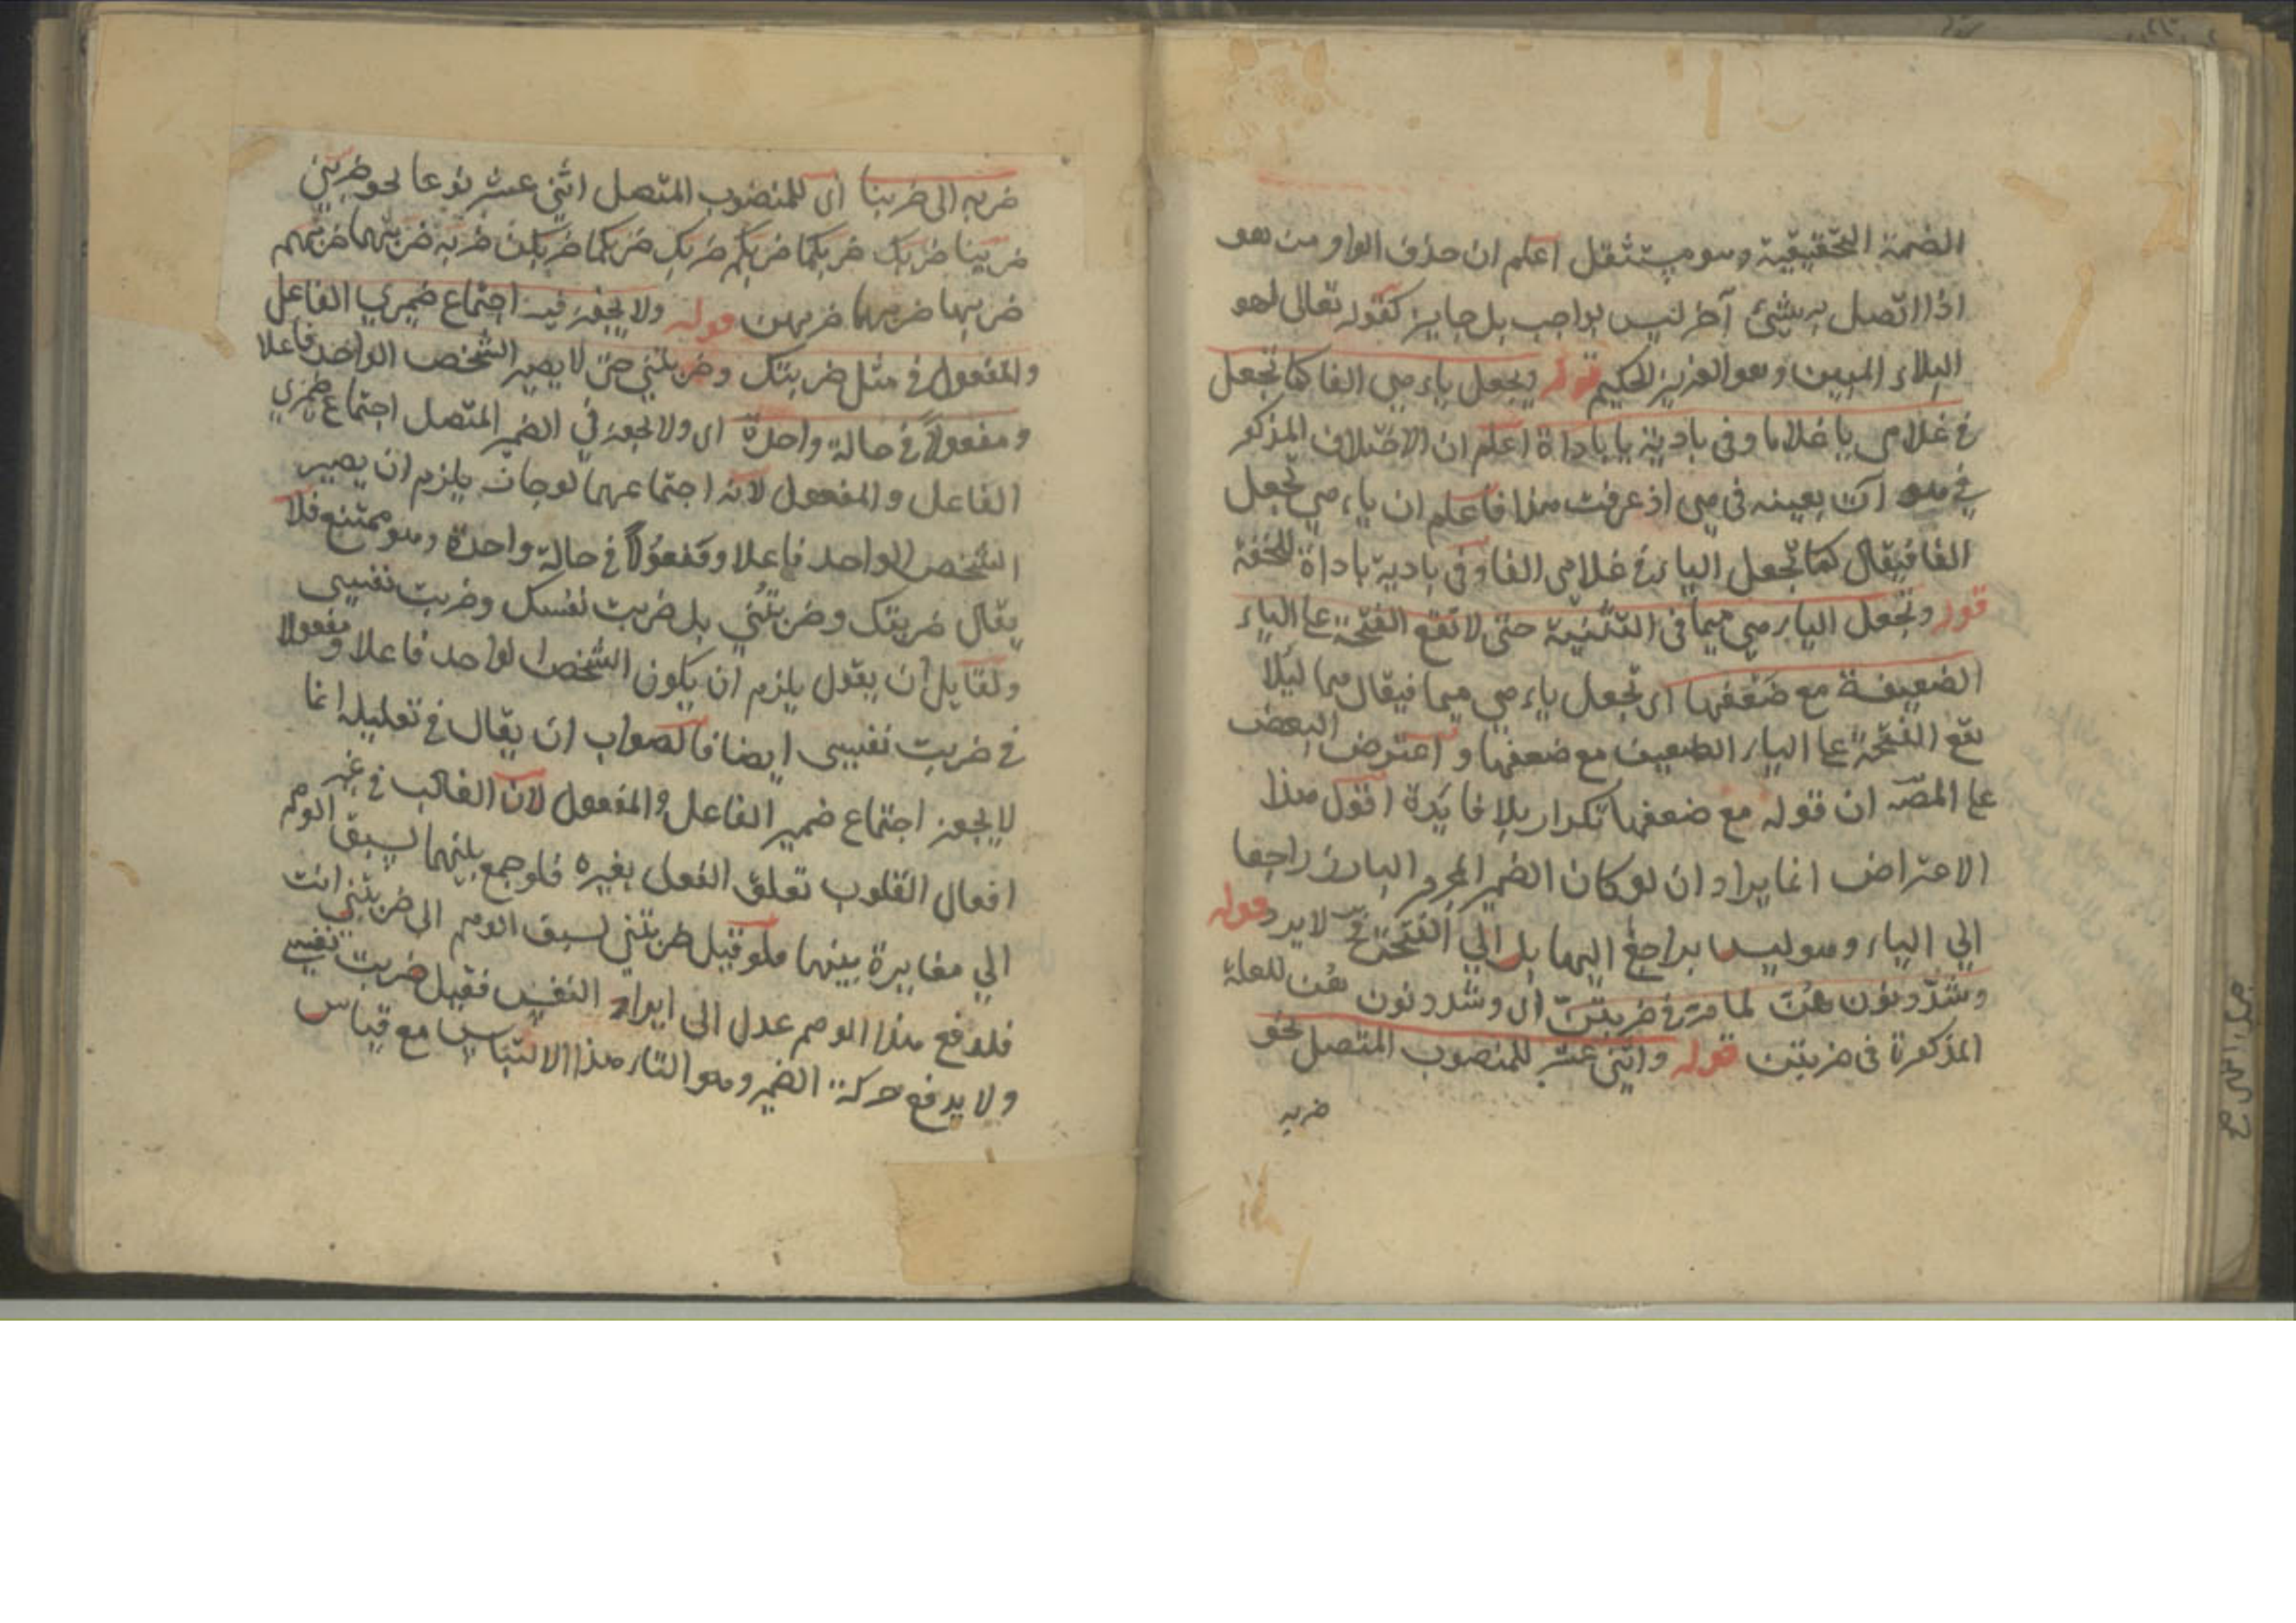 الضمة التحقيقية وهو مستثقل اعلم ان حذف الواو من هو
اذا اتصل به شئ آخر ليس بواجب بل جايز كقوله تعالى لهو
البلاء المبين وهو العزيز الحكيم قوله ويجعل ياء هي الفا كما تجعل
في غلامي يا غلاما وفي بادية يا باداة اعلم ان الاختلاف المذكور
في هو آت بعينه في هي اذ عرفت هذا فاعلم ان ياء هي تجعل
الفا فيقال كما تجعل الياء في غلامي الفا وفي بادية باداة للخفة
قوله وتجعل الياء هي ميما في التثنية حتى لا تقع الفتحة على الياء
الضعيفة مع ضعفها اى تجعل ياء هي ميما فيقال هما ليلا
تقع الفتحة على الياء الضعيف مع ضعفها واعترض البعض
على المصّ ان قوله مع ضعفها تكرار بلا فايدة اقول هذا
الاعتراض انما يراد ان لو كان الضمير المجرور البارز راجعا
الى الياء وهو ليس براجع اليها بل الي الفتحة لا يرد قوله
وشدّد نون هنّ لما مرّ في ضربتنّ اى وشدد نون هن للعلة
المذكورة في ضربتن قوله واثني عشر للمنصوب المتصل نحو
ضربه
ضربه الى ضربنا اى للمنصوب المتصل اثني عشر نوعا نحو ضربني
ضربنا ضربك ضربكما ضربكم ضربك ضربكما ضربكن ضربه ضربهما ضربهم
ضربها ضربهما ضربهن قوله ولا يجوز فيه اجتماع ضميري الفاعل
والمفعول في مثل ضربتك وضربتني حتى لا يصير الشخص الواحد فاعلا
ومفعولاً في حالة واحدة اى ولا يجوز في الضمير المتصل اجتماع ضميري
الفاعل والمفعول لانه اجتماعهما لو جاز يلزم ان يصير
الشخص الواحد فاعلا ومفعولاً في حالة واحدة وهو ممتنع فلا
يقال ضربتك وضربتني بل ضربت نفسك وضربت نفسي
ولقايل ان يقول يلزم ان يكون الشخص الواحد فاعلا ومفعولا
في ضربت نفسي ايضا فالصواب ان يقال في تعليله انما
لا يجوز اجتماع ضمير الفاعل والمفعول لان الغالب في غير
افعال القلوب تعلق الفعل بغيره فلو جمع بينهما لسبق الوهم
الي مغايرة بينهما فلو قيل ضربتني لسبق الوهم الى ضربتني انت
فلدفع هذا الوهم عدل الى ايراد النفس فقيل ضربت نفسي
ولا يدفع حركة الضمير وهو التاء هذا الالتباس مع قياس